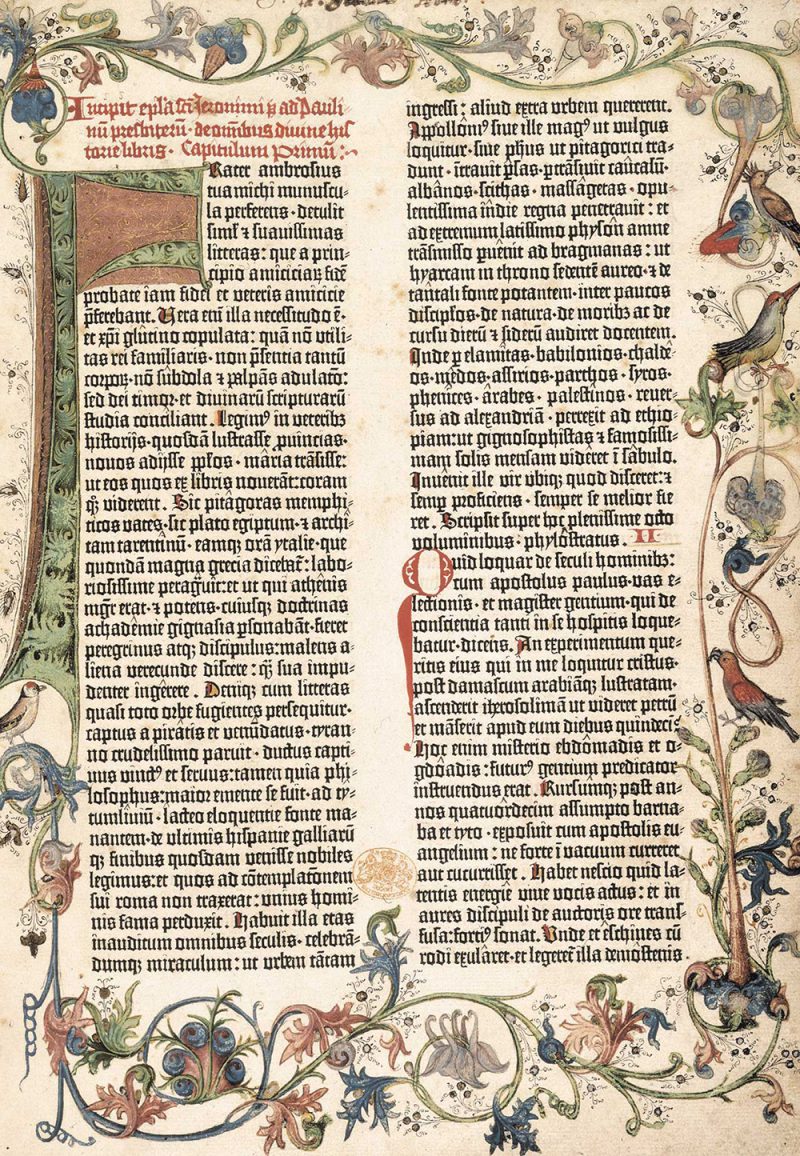 Incipit epl̄a sc̄ti Jeronimi p̄ ad Pauli-
nū presbiterū · de om̄ibus divine his
torie libris · Capitulum Primū:
Frater ambrosius
tua michi munuscu-
la perferens · detulit
siml̄ et suauissimas
litteras: que a prin-
cipio amiciciaꝝ fidē
probate iam fidei et veteris amicicie
p̄ferebant. Uera enī illa necessitudo ē ·
et xp̄i glutino copulata: quā nō utili-
tas rei familiaris · non p̄sentia tantū
corpoꝝ · nō subdola ⁊ palpās adulatō:
sed dei timor · et divinarū scripturarū
studia conciliant. Legimꝰ in veteribꝫ
historijs · quosdā lustrasse ꝓuincias ·
nouos adijsse pp̄los · maria trāsisse:
ut eos quos ex libris nouerāt: coram
qꝫ viderent. Sic pitagoras memphi-
ticos vates · sic plato egiptum · ⁊ archi-
tam tarentinū · eamqꝫ orā ytalie · que
quondā magna grecia dicebat̄: labo-
riosissime peragͥuit: et ut qui athēnis
mgr̄ erat · ⁊ potens · cuiusqꝫ doctrinas
achadēmie gignasia ꝑsonabāt · fieret
peregrinus atqꝫ discipulus: malens a-
liena verecunde discere: qꝫ sua impu-
denter ingerere. Deniqꝫ cum litteras
quasi toto orbe fugientes persequitur ·
captus a piratis et venūdatus · tyran-
no crudelissimo paruit · ductus capti-
uus vinctꝰ et seruus: tamen quia phi-
losophus: maior emente se fuit · ad ty-
tumliuiū · lacteo eloquentie fonte ma-
nantem · de ultimis hispanie galliarū
qꝫ finibus quosdam venisse nobiles
legimus: et quos ad cōtemplatonem
sui roma non traxerat: unius homi-
nis fama perduxit. Habuit illa etas
inauditum omnibus seculis · celebrā-
dumqꝫ miraculum: ut urbem tātam
ingressi: aliud extra urbem quererent.
Appolloniꝰ siue ille magꝰ ut vulgus
loquitur · siue ph̄us ut pitagorici tra-
dunt · ītrauit ꝑsas · ꝑtrāsiuit caucasū ·
albānos · scithas · massagetas · opu-
lentissima indie regna penetrauit: et
ad extremum latissimo physon amne
trāsmisso ꝑuēnit ad bragmanas: ut
hyarcam in throno sedentē aureo · ⁊ de
tātali fonte potantem · inter paucos
discip̄los · de natura · de moribꝫ ac de
cursu dierū ⁊ siderū audiret docentem.
Inde ꝑ elamitas · babilonios · chaldē-
os · medos · assirios · parthos · syros ·
phenices · ārabes · palestinos · reuer-
sus ad alexandriā · perrexit ad ethio-
piam: ut gignosophistas ⁊ famosissi-
mam solis mensam videret ī sabulo.
Inuenit ille vir ubiqꝫ quod disceret: ⁊
semꝑ proficiens · semper se melior fie
ret. Scripsit super hoc plenissime octo
voluminibus · phylostratus. II
Quid loquar de seculi hominibꝫ:
cum apostolus paulus · vas e-
lectionis · et magister gentium · qui de
conscientia tanti in se hospitis loque-
batur · dicens. An experimentum que-
ritis eius qui in me loquitur cristus ·
post damascum arabiāqꝫ lustratam ·
ascenderit iherosolimā ut videret petrū
et māserit apud eum diebus quindeci͂
Hoc enim misterio ebdōmadis et o-
gdōadis: futurꝰ gentium predicator
instruendus erat. Rursumqꝫ post an-
nos quatuordecim assumpto barna-
ba et tyto · exposuit cum apostolis eu-
angelium: ne forte ī vacuum curreret
aut cucurrisset. Habet nescio quid la-
tentis energie viue vocis actus: et in
aures discipuli de auctoris ore trans-
fusa: fortiꝰ sonat. Unde et eschines cū
rodi exularet · et legeret̄ illa demostenis ·